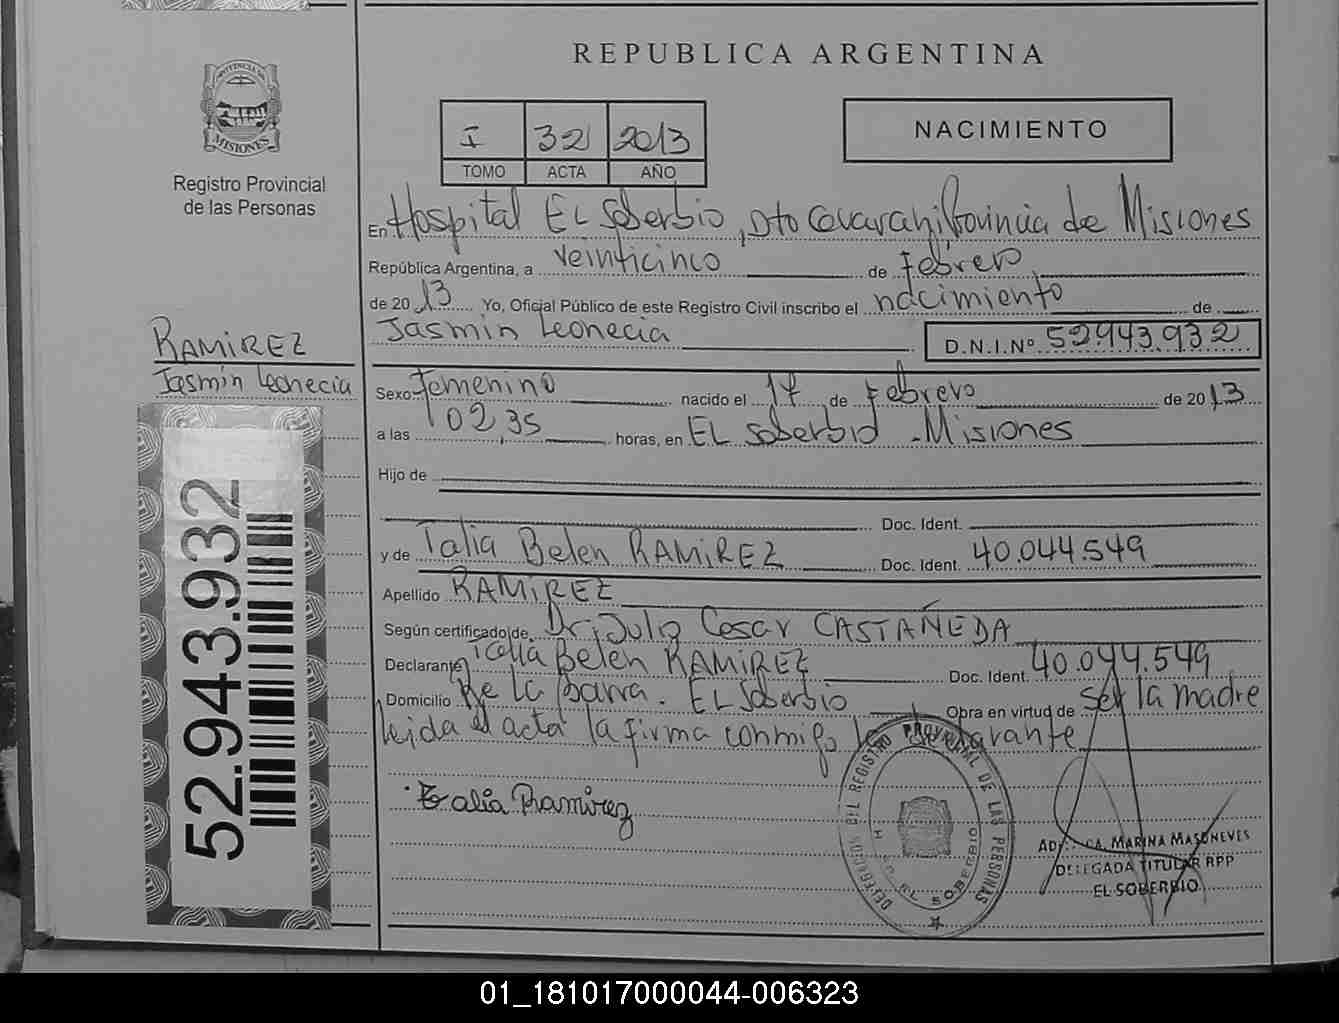 REPUBLICA ARGENTINA
PROVINCIA DE
MISIONES
Registro Provincial
de las Personas
I 32 2013
TOMO ACTA AÑO
NACIMIENTO
En Hospital EL Soberbio, Dto Guarani Provincia de Misiones
República Argentina, a veinticinco de febrero
de 2013 Yo, Oficial Público de este Registro Civil inscribo el nacimiento de
Jasmin Leonecia
D.N.I.Nº 52.943.932
RAMIREZ
Jasmin Leonecia
Sexo Femenino nacido el 17 de Febrero de 2013
a las 02,35 horas, en EL Soberbio - Misiones
Hijo de
Doc. Ident.
y de Talia Belen RAMIREZ Doc. Ident. 40.044.549
Apellido RAMIREZ
Según certificado de Dr. Julio Cesar CASTAÑEDA
Declarante Talia Belen RAMIREZ Doc. Ident. 40.044.549
Domicilio Bº La Barra. EL Soberbio Obra en virtud de ser la madre
leida el acta la firma conmigo la declarante
Talia Ramirez
52.943.932
DELEGACION DEL REGISTRO PROVINCIAL DE LAS PERSONAS
EL SOBERBIO
MARINA MASONEVES
DELEGADA TITULAR RPP
EL SOBERBIO
01_181017000044-006323